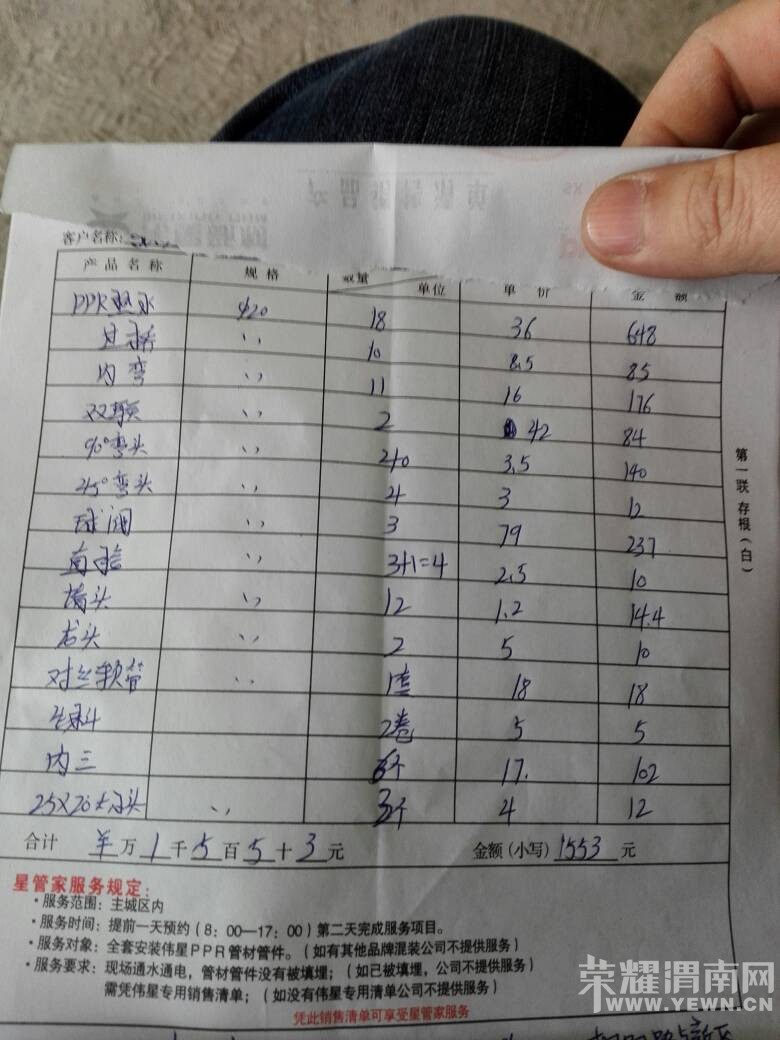 客户名称:
产品名称 规格 数量 单位 单价 金额
PPR热水 φ20 18 36 648
过桥 〃 10 8.5 85
内弯 〃 11 16 176
双联 2 42 84
90°弯头 〃 40 3.5 140
45°弯头 〃 4 3 12
球阀 〃 3 79 237
直接 〃 3+1=4 2.5 10
堵头 〃 12 1.2 14.4
龙头 〃 2 5 10
对丝软管 〃 1 18 18
生料 2卷 5 5
内三 6个 17. 102
25X20大小头 〃 3个 4 12
合计 万 1 千 5 百 5 十 3 元 金额(小写) 1553 元
第一联 存根(白)
星管家服务规定:
·服务范围: 主城区内
·服务时间: 提前一天预约(8:00—17:00)第二天完成服务项目。
·服务对象: 全套安装伟星PPR管材管件。(如有其他品牌混装公司不提供服务)
·服务要求: 现场通水通电,管材管件没有被填埋;(如已被填埋,公司不提供服务)
需凭伟星专用销售清单;(如没有伟星专用清单公司不提供服务)
凭此销售清单可享受星管家服务
荣耀渭南网
WWW.YEWN.CN